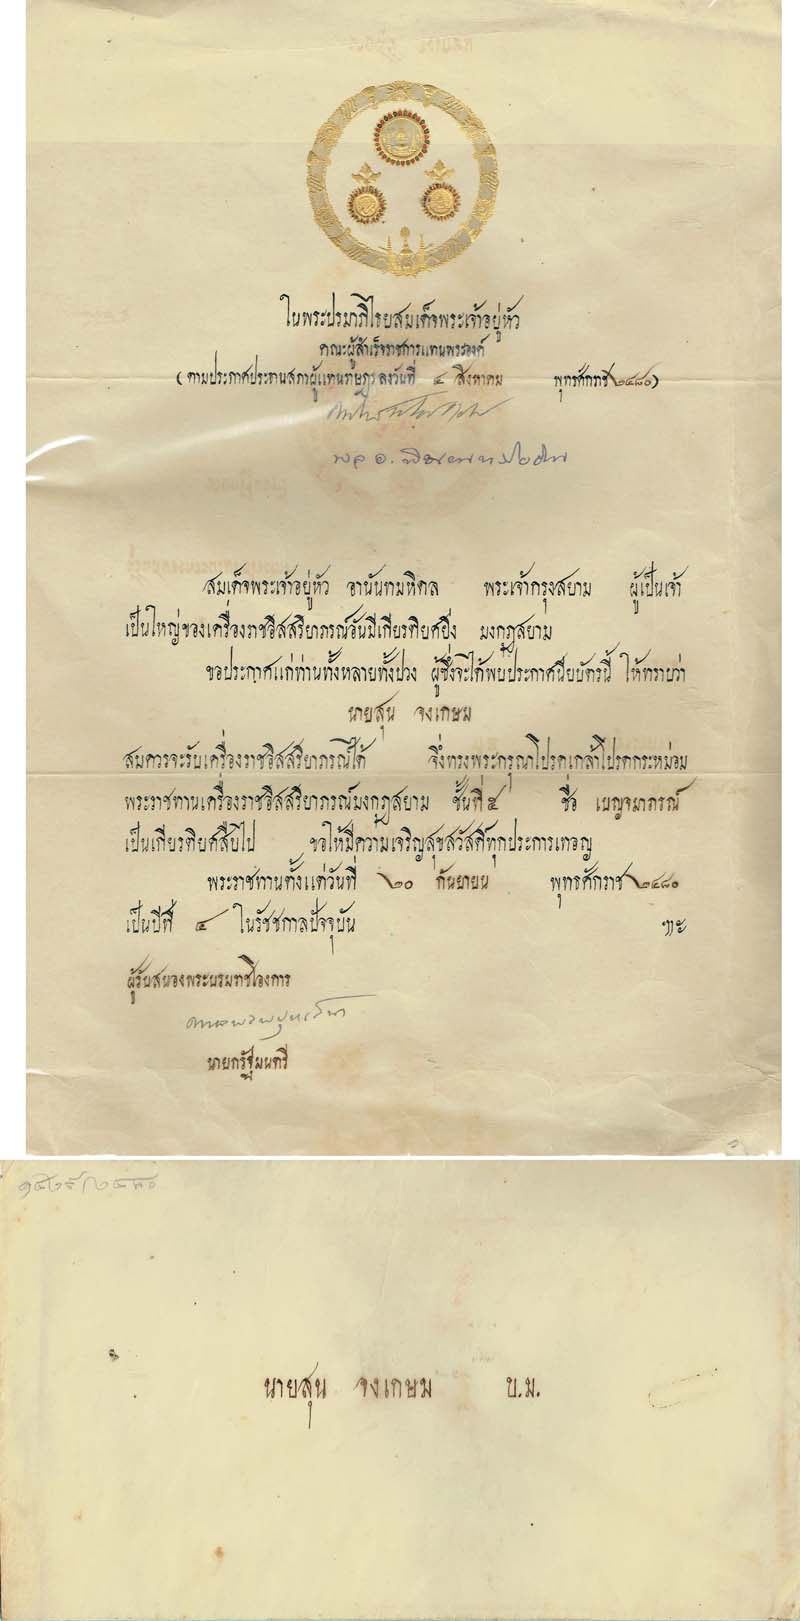 ในพระปรมาภิไธยสมเด็จพระเจ้าอยู่หัว
คณะผู้สำเร็จราชการแทนพระองค์
(ตามประกาศประธานสภาผู้แทนราษฎร ลงวันที่ ๔ สิงหาคม พุทธศักราช ๒๔๘๐)
พล อ.
สมเด็จพระเจ้าอยู่หัว อานันทมหิดล พระเจ้ากรุงสยาม ผู้เป็นเจ้า
เป็นใหญ่ของเครื่องราชอิสสริยาภรณ์อันมีเกียรติยศยิ่ง มงกุฎสยาม
ขอประกาศแก่ท่านทั้งหลายทั้งปวง ผู้ซึ่งจะได้พบประกาศนียบัตรนี้ ให้ทราบว่า
นายสุน จงเกษม
สมควรจะรับเครื่องราชอิสสริยาภรณ์ได้ จึ่งทรงพระกรุณาโปรดเกล้าโปรดกระหม่อม
พระราชทานเครื่องราชอิสสริยาภรณ์มงกุฎสยาม ชั้นที่ ๕ ชื่อ เบญจมาภรณ์
เป็นเกียรติยศสืบไป ขอให้มีความเจริญสุขสวัสดิ์ทุกประการเทอญ
พระราชทานตั้งแต่วันที่ ๒๐ กันยายน พุทธศักราช ๒๔๘๐
เป็นปีที่ ๔ ในรัชชกาลปัจจุบัน ฯะ
ผู้รับสนองพระบรมราชโองการ
นายกรัฐมนตรี
นายสุน จงเกษม บ.ม.